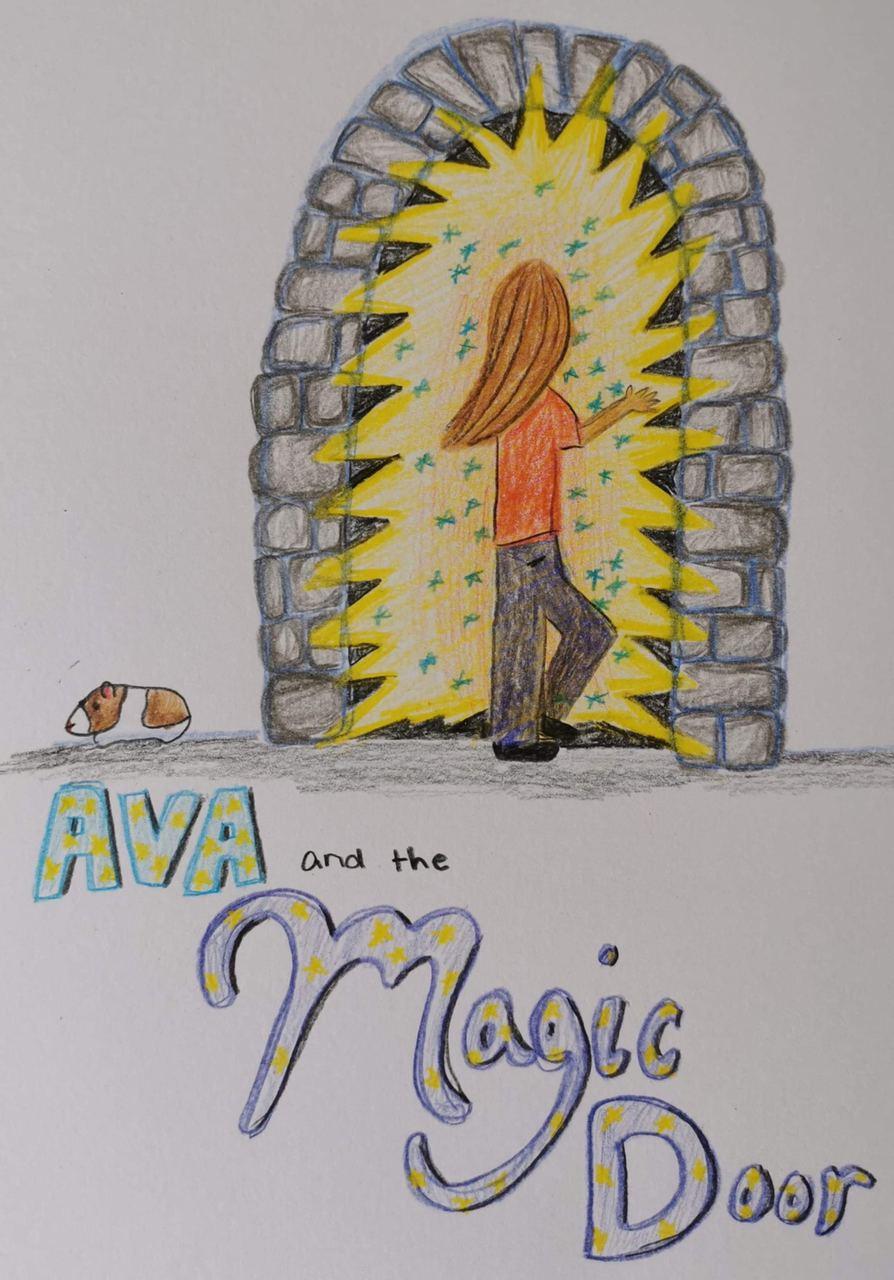 AVA and the
Magic
Door